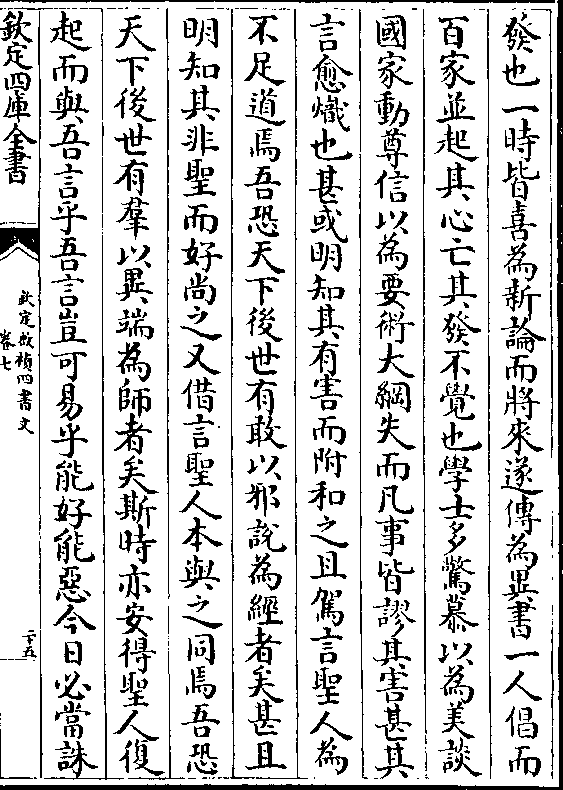 發也一時皆喜為新論而將來遂傳為異書一人倡而
百家並起其心亡其發不覺也學士多驚慕以為美談
國家動尊信以為要術大綱失而凡事皆謬其害甚其
言愈熾也甚或明知其有害而附和之且駕言聖人為
不足道焉吾恐天下後世有敢以邪說為經者矣甚且
明知其非聖而好尚之又借言聖人本與之同焉吾恐
天下後世有羣以異端為師者矣斯時亦安得聖人復
起而與吾言乎吾言豈可易乎能好能惡今日必當誅
欽定四庫全書
欽定啟禎四書文
卷七
二十五